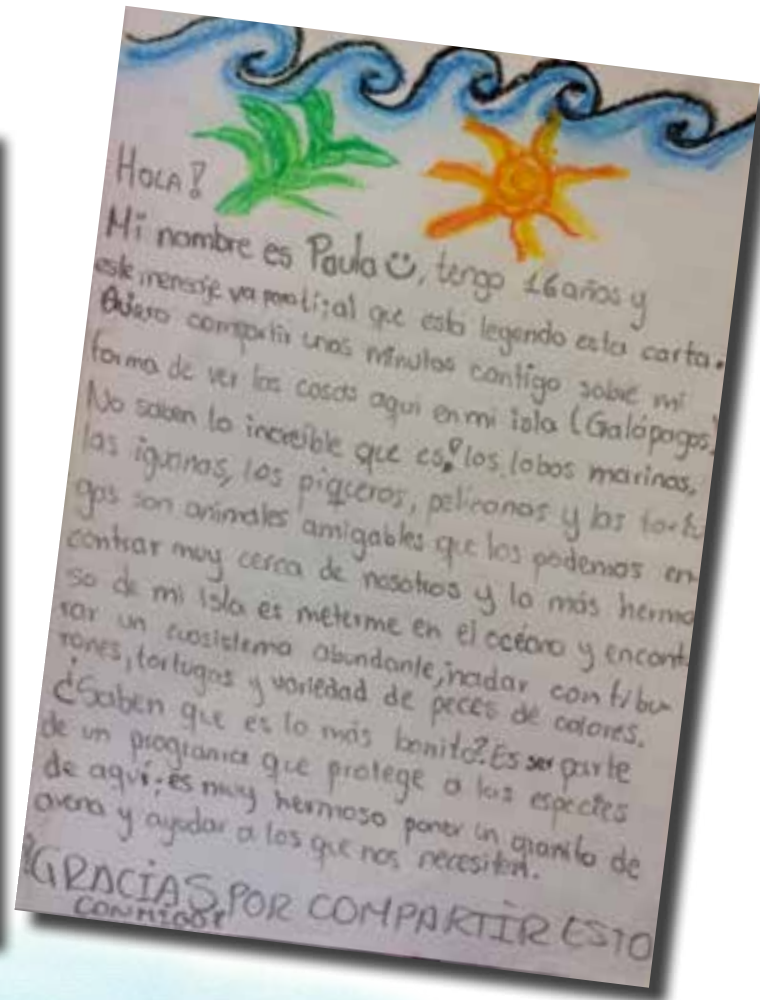 HOLA!
Mi nombre es Paula, tengo 16 años y
este mensaje va para ti; al que está legendo esta carta.
Quiero compartir unos minutos contigo sobre mi
forma de ver las cosas aqui en mi isla (Galápagos)
No saben lo increíble que es! los lobos marinos,
las iguanas, los piqueros, pelicanos y las tortu
gas son animales amigables que los podemos en-
contrar muy cerca de nosotros y lo más hermo
so de mi isla es meterme en el océano y encont
rar un ecosistema abundante, nadar con tibu
rones, tortugas y variedad de peces de colores.
¿Saben que es lo más bonito? Es ser parte
de un programa que protege a las especies
de aquí; es muy hermoso poner un granito de
arena y ayudar a los que nos necesitan.
¡GRACIAS POR COMPARTIR ESTO
CONMIGO!